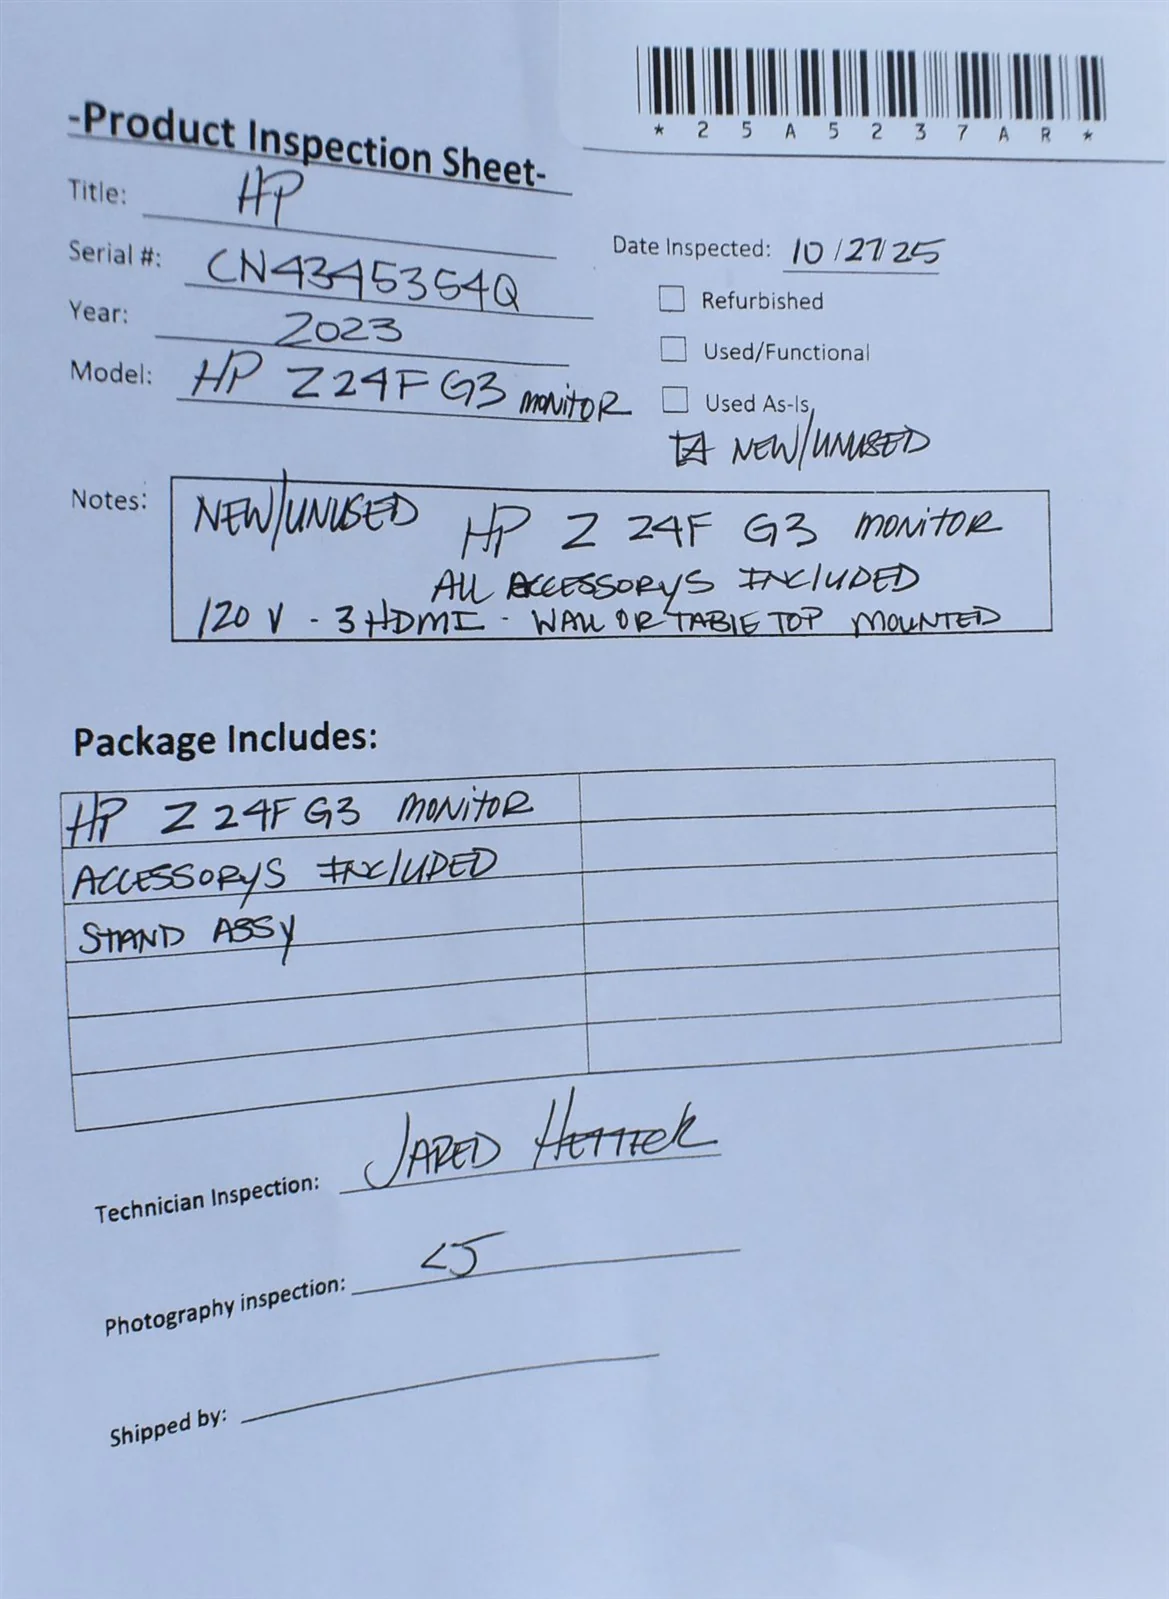 *25A5237AR*
-Product Inspection Sheet-
Title: HP
Serial #: CN4345354Q
Year: 2023
Model: HP Z24F G3 MONITOR
Date Inspected: 10/27/25
Refurbished
Used/Functional
Used As-Is
NEW/UNUSED
Notes: NEW/UNUSED HP Z 24F G3 MONITOR
ALL ACCESSORYS INCLUDED
120 V - 3 HDMI - WALL OR TABLE TOP MOUNTED
Package Includes:
HP Z 24F G3 MONITOR
ACCESSORYS INCLUDED
STAND ASSY
Technician Inspection: JARED
Photography inspection:
Shipped by: